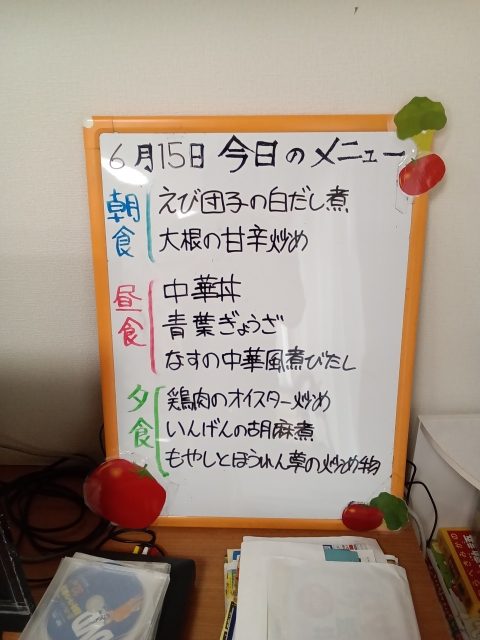 6月15日 今日のメニュー
朝食
えび団子の白だし煮
大根の甘辛炒め
昼食
中華丼
青葉ぎょうざ
なすの中華風煮びたし
夕食
鶏肉のオイスター炒め
いんげんの胡麻煮
もやしとほうれん草の炒め物